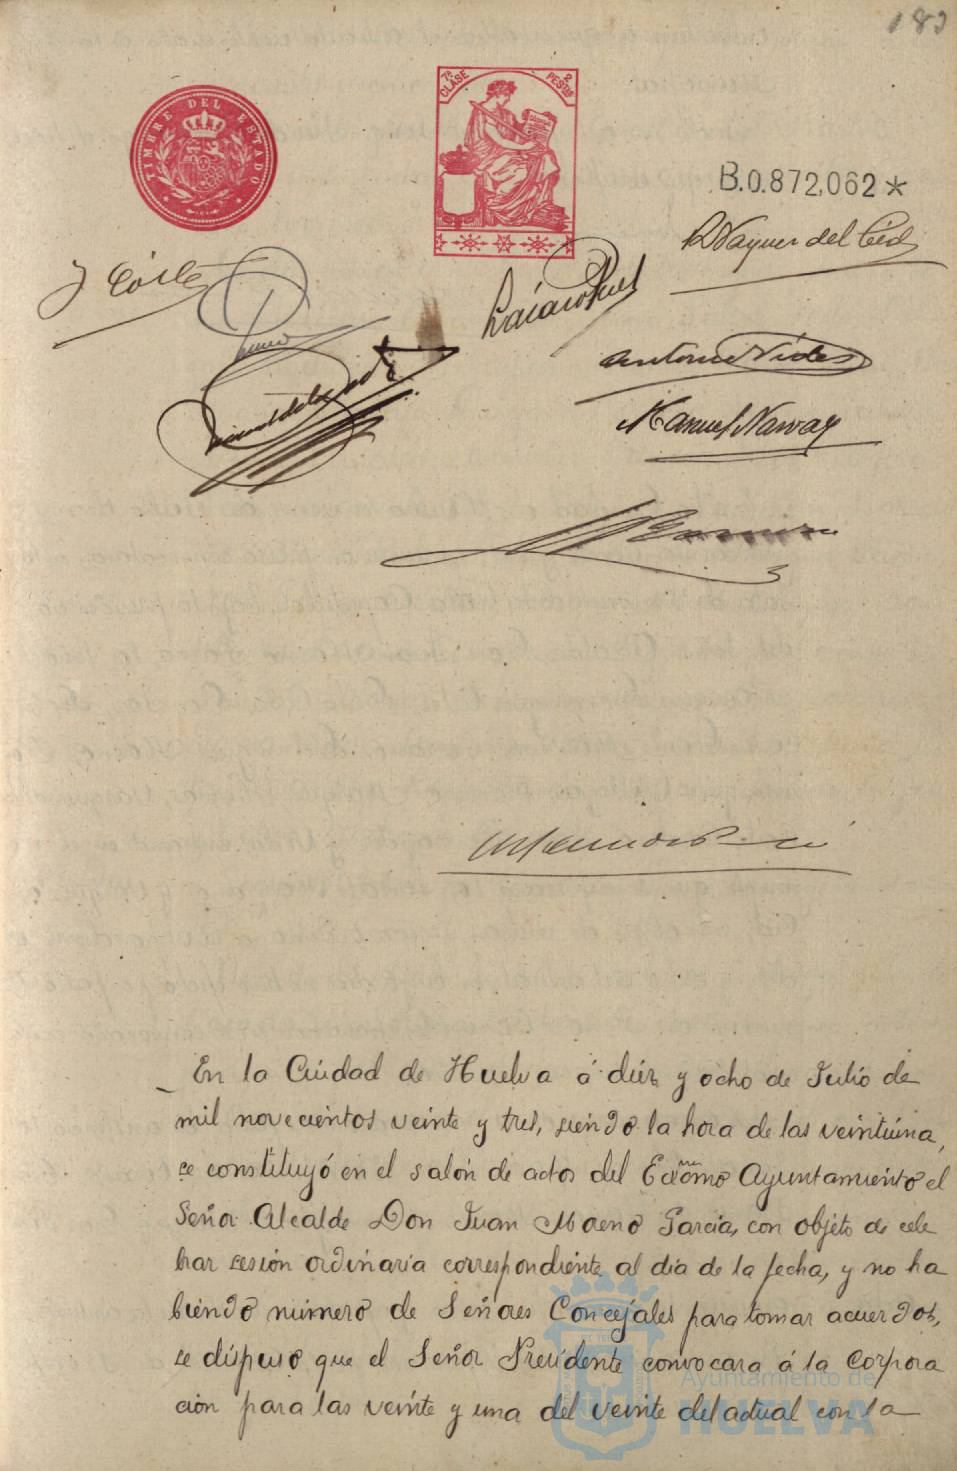 183
TIMBRE DEL ESTADO
7ª CLASE
2 PESTAS
B.0.872,062*
R Vazquez del Cid
J Cóste
Antonio Vides
Manuel Narvaez
En la Ciudad de Huelva á diez y ocho de Julio de
mil novecientos veinte y tres, siendo la hora de las veintiuna,
se constituyó en el salón de actos del Excmo Ayuntamiento el
Señor Alcalde Don Juan Moreno Garcia, con objeto de cele
brar sesión ordinaria correspondiente al día de la fecha, y no ha
biendo número de Señores Concejales para tomar acuerdos,
se dispuso que el Señor Presidente convocara á la Corpora
ción para las veinte y una del veinte del actual con la
Ayuntamiento de
HUELVA